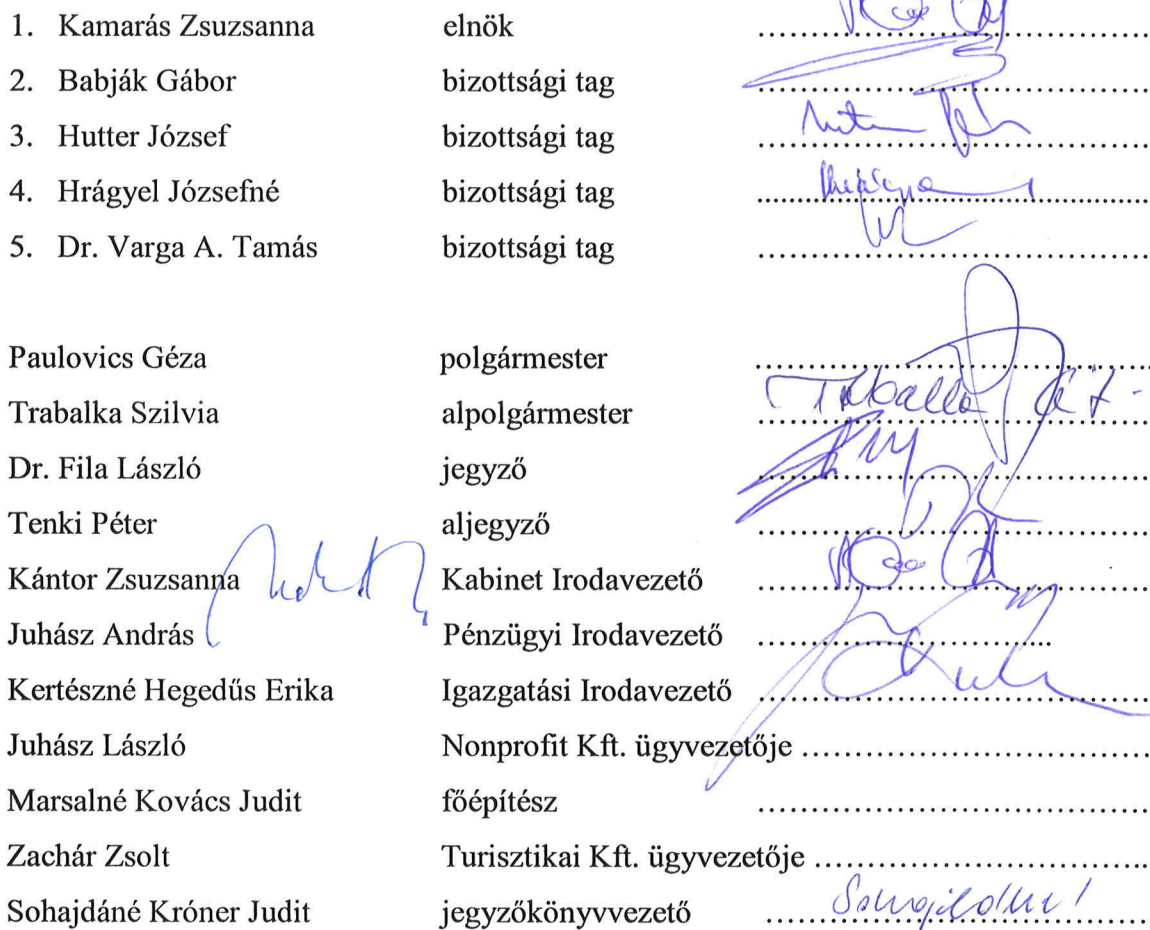 1. Kamarás Zsuzsanna elnök ........................................
2. Babják Gábor bizottsági tag ........................................
3. Hutter József bizottsági tag ........................................
4. Hrágyel Józsefné bizottsági tag ........................................
5. Dr. Varga A. Tamás bizottsági tag ........................................
Paulovics Géza polgármester ........................................
Trabalka Szilvia alpolgármester ........................................
Dr. Fila László jegyző ........................................
Tenki Péter aljegyző ........................................
Kántor Zsuzsanna Kabinet Irodavezető ........................................
Juhász András Pénzügyi Irodavezető ..............................
Kertészné Hegedűs Erika Igazgatási Irodavezető ........................................
Juhász László Nonprofit Kft. ügyvezetője ....................................
Marsalné Kovács Judit főépítész ........................................
Zachár Zsolt Turisztikai Kft. ügyvezetője ..................................
Sohajdáné Króner Judit jegyzőkönyvvezető ........................................